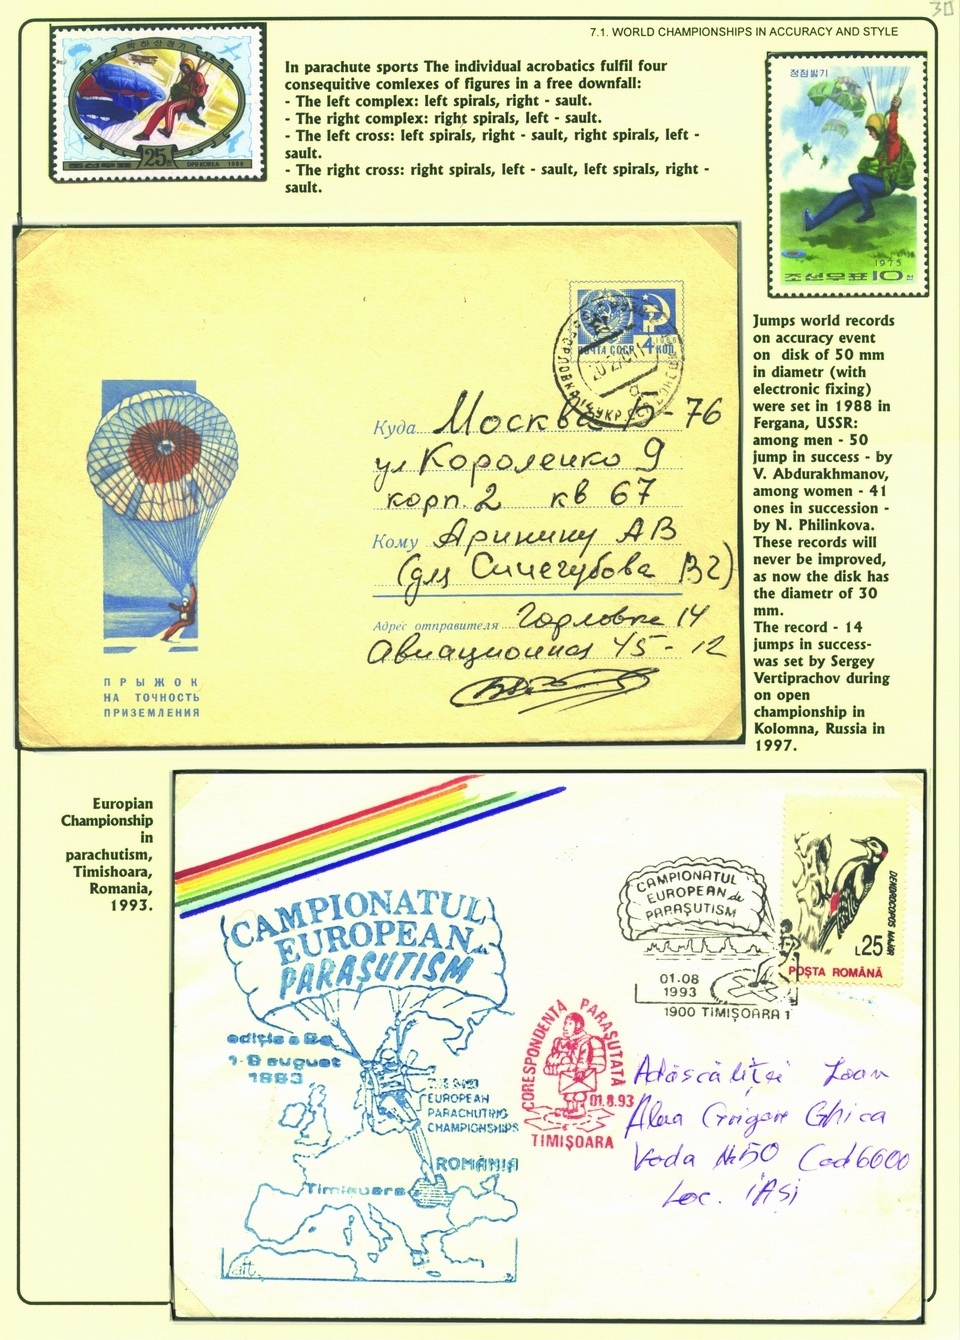 30
7.1. WORLD CHAMPIONSHIPS IN ACCURACY AND STYLE
25
DPR KOREA 1988
In parachute sports The individual acrobatics fulfil four
consequitive comlexes of figures in a free downfall:
- The left complex: left spirals, right - sault.
- The right complex: right spirals, left - sault.
- The left cross: left spirals, right - sault, right spirals, left -
sault.
- The right cross: right spirals, left - sault, left spirals, right -
sault.
정점밟기
1975
조선우표 10 전
ПОЧТА СССР 4 КОП.
Куда Москва Б-76
ул Короленко 9
корп. 2 кв 67
Кому Аринину АВ
(для Синегубова В2)
Адрес отправителя Горловка 14
Авиационная 45-12
ПРЫЖОК
НА ТОЧНОСТЬ
ПРИЗЕМЛЕНИЯ
Jumps world records
on accuracy event
on disk of 50 mm
in diametr (with
electronic fixing)
were set in 1988 in
Fergana, USSR:
among men - 50
jump in success - by
V. Abdurakhmanov,
among women - 41
ones in succession -
by N. Philinkova.
These records will
never be improved,
as now the disk has
the diametr of 30
mm.
The record - 14
jumps in success-
was set by Sergey
Vertiprachov during
on open
championship in
Kolomna, Russia in
1997.
Europian
Championship
in
parachutism,
Timishoara,
Romania,
1993.
CAMPIONATUL
EUROPEAN de
PARAȘUTISM
ediția a 2a
1-9 august
1993
EUROPEAN
PARACHUTING
CHAMPIONSHIPS
ROMÂNIA
Timișoara
CORESPONDENȚĂ PARAȘUTATĂ
01.8.93
TIMIȘOARA
CAMPIONATUL
EUROPEAN de
PARAȘUTISM
01-08
1993
1900 TIMIȘOARA 1
DENDROCOPOS MAJOR
L25
POȘTA ROMÂNĂ
Adăscăliței Ioan
Alea Grigore Ghica
Voda Nr 50 Cod 6600
Loc. IAȘI